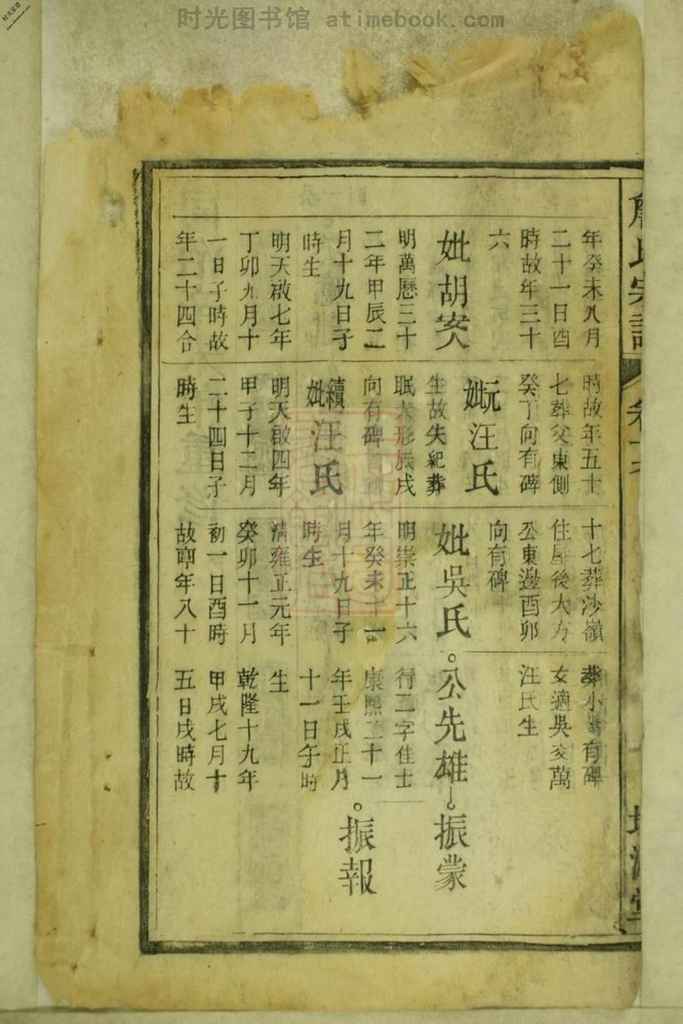 时光图书馆 atimebook.com
氏宗譜
年癸未八月
二十一日酉
時故年三十
六
妣胡安
明萬歷三十
二年甲辰二
月十九日子
時生
明天啟七年
丁卯九月十
一日子時故
年二十四合
時故年五十
七葬父東側
癸丁向有碑
妣元汪氏
生故失紀葬
眠犬形辰戌
向有碑
續妣汪氏
明天啟四年
甲子十二月
二十四日子
時生
十七葬沙嶺
住屋後大方
公東邊酉卯
向有碑
妣吳氏
明崇正十六
年癸未十一
月十九日子
時生
清雍正元年
癸卯十一月
初一日酉時
故年八十
葬小有碑
女適吳安萬
汪氏生
公先雄
行二字佳士
康熙二十一
年壬戌正月
十一日午時
生
乾隆十九年
甲戌七月十
五日戌時故
振蒙
振報